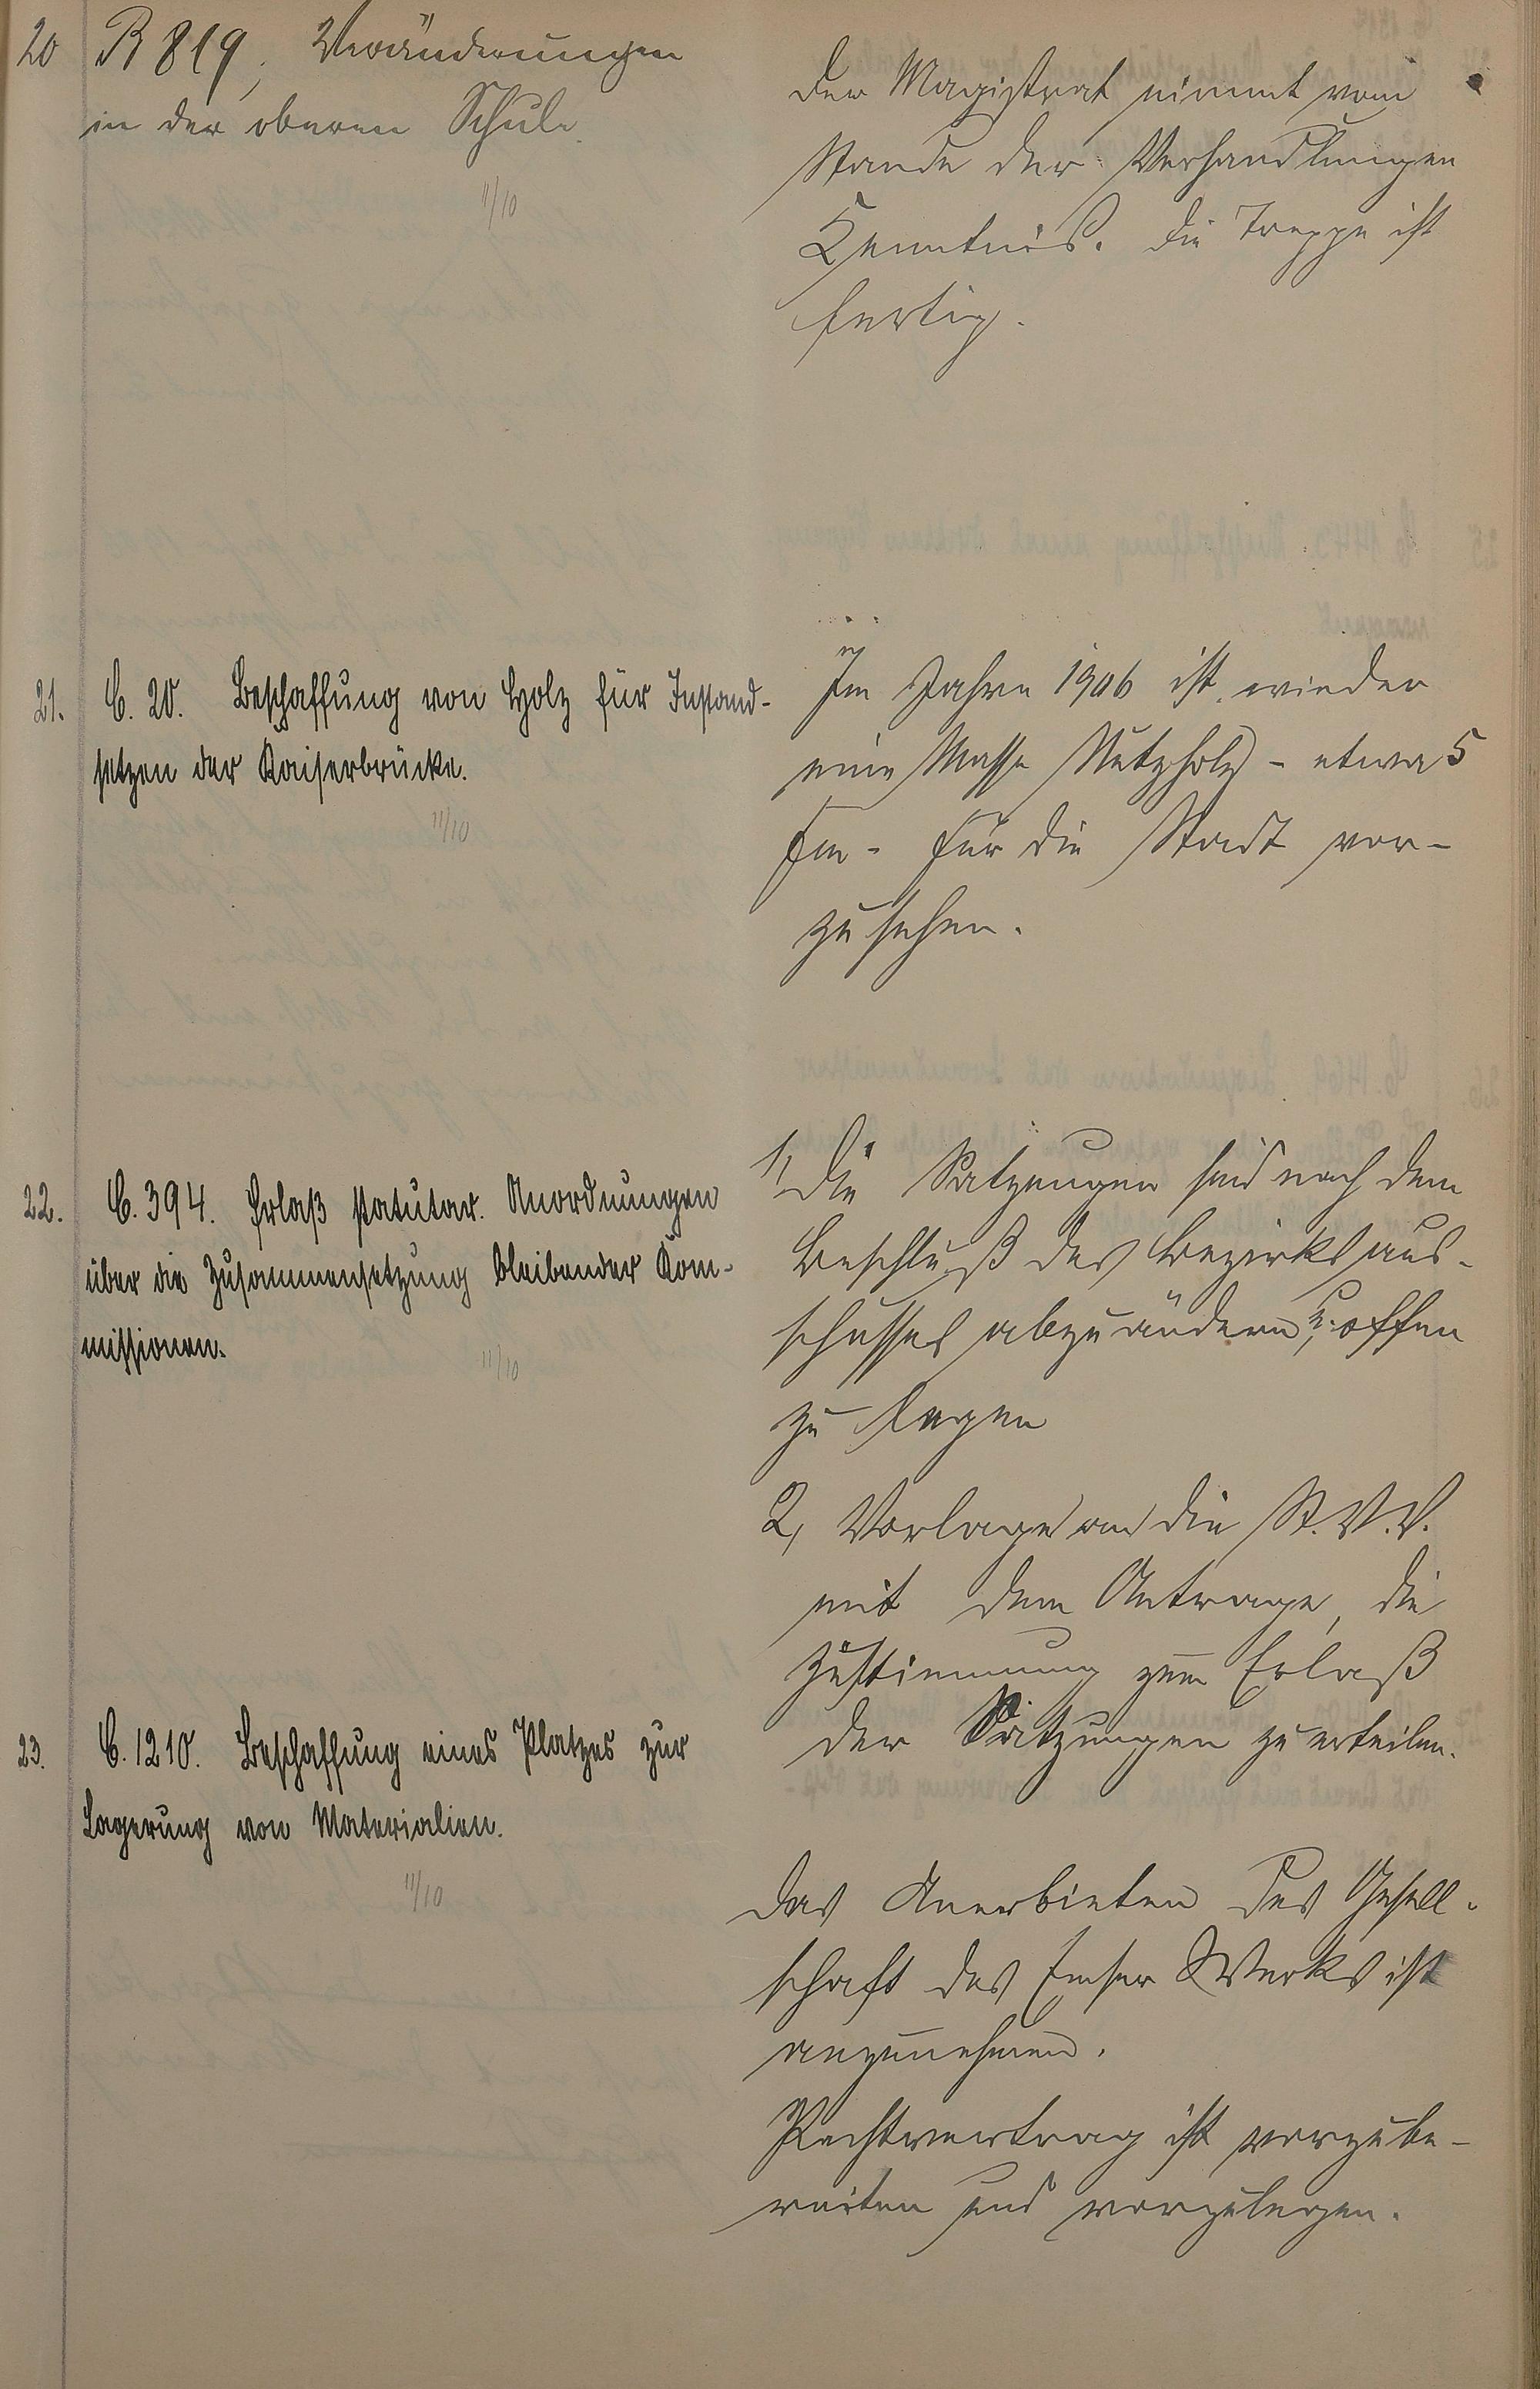 20 R 819, Veränderungen
in der oberen Schule.
11/10
Der Magistrat nimmt vom
Stande der Verhandlungen
Kenntnis. Die Treppe ist
fertig.
21. C. 20. Beschaffung von Holz für Instand-
setzen der Kaiserbrücke.
11/10
Im Jahre 1906 ist wieder
eine Masse Nutzholz - etwa 5
fm - für die Stadt vor-
zusehen.
22. C. 394. Erlaß statutar. Anordnungen
über die Zusammensetzung bleibender Kom-
missionen.
11/10
1, Die Satzungen sind nach dem
Beschluß des Bezirksaus-
schusses abzuändern u. offen
zu legen
2, Vorlage an die St. V. V.
mit dem Antrage, die
Zustimmung zum Erlaß
der Satzungen zu erteilen.
23. C. 1210. Beschaffung eines Platzes zur
Lagerung von Materialien.
11/10
Das Anerbieten des Gesell-
schaft des Emser Werks ist
anzunehmen.
Pachtvertrag ist vorzube-
reiten und vorzulegen.